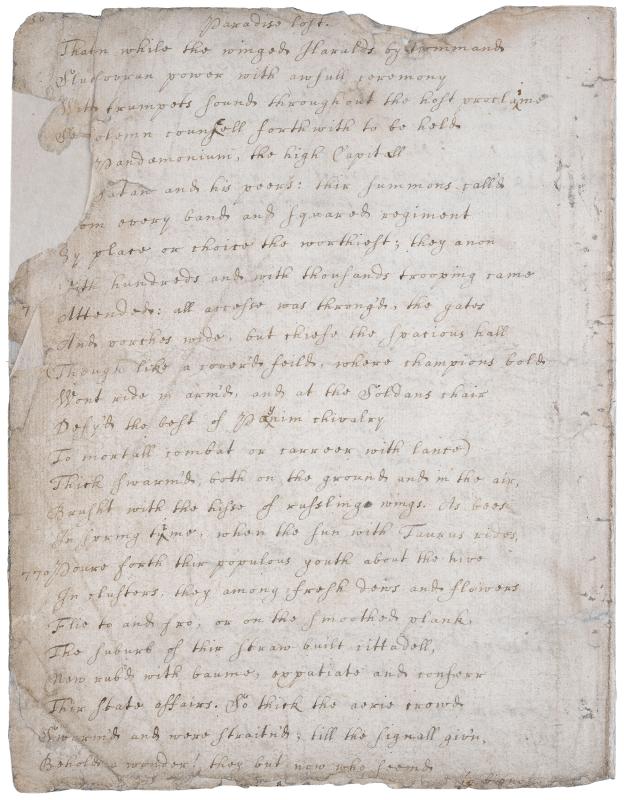 Paradise lost.
Thatn while the winged Haralds by command
Of Sovran power with awfull ceremony
With trumpets sound throughout the host proclaime
A solemn counsell forthwith to be held
Pandæmonium, the high Capitall
Satan and his peers: thir summons call'd
om every band and squared regiment
By place or choice the worthiest; they anon
ith hundreds and with thousands trooping came
Attended: all accesse was throng'd, the gates
And porches wide, but chiefe the spacious hall
(Though like a cover'd feild, where champions bold
Wont ride in arm'd, and at the Soldans chair
Defy'd the best of Paynim chivalry
To mortall combat or carreer with lance)
Thick swarm'd, both on the ground and in the air,
Brusht with the hisse of russling wings. As bees
In spring time, when the sun with Taurus rides,
770 Poure forth thir populous youth about the hive
In clusters; they among fresh dews and flowers
Flie to and fro, or on the smoothed plank,
The suburb of thir straw built cittadell,
New rub'd with baume, expatiate and conferr
Thir state affairs. So thick the aerie crowd
Swarm'd and were strait'n'd; till the signall giv'n,
Behold a wonder! they but now who seemd